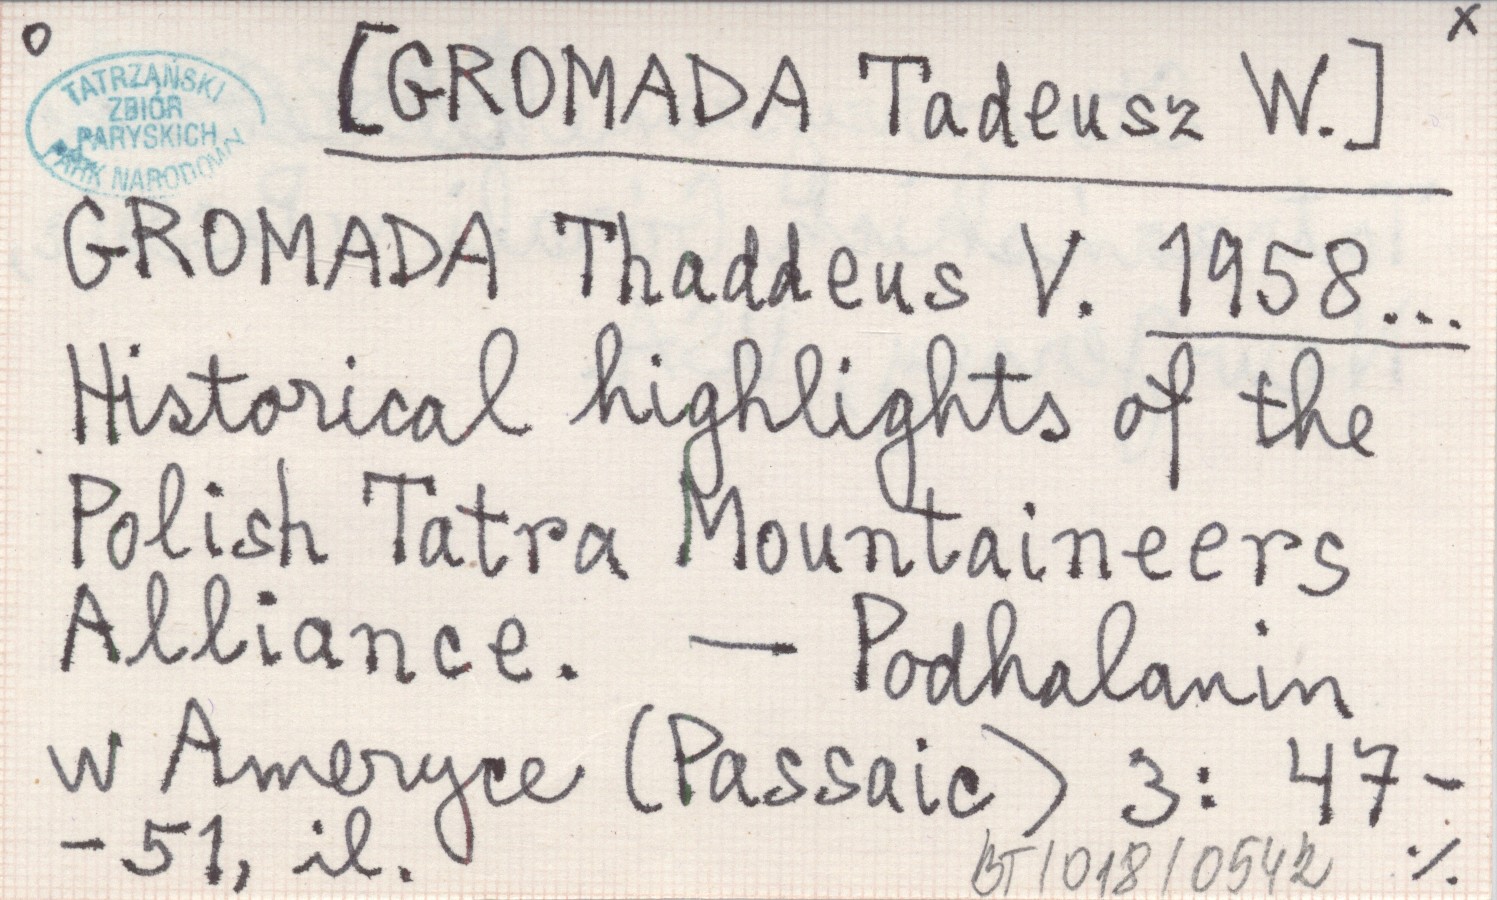 o
x
TATRZAŃSKI
ZBIÓR
PARYSKICH
PARK NARODOWY
[GROMADA Tadeusz W.]
GROMADA Thaddeus V. 1958...
Historical highlights of the
Polish Tatra Mountaineers
Alliance. — Podhalanin
w Ameryce (Passaic) 3: 47-
-51, il.
BT/018/0542
·/.